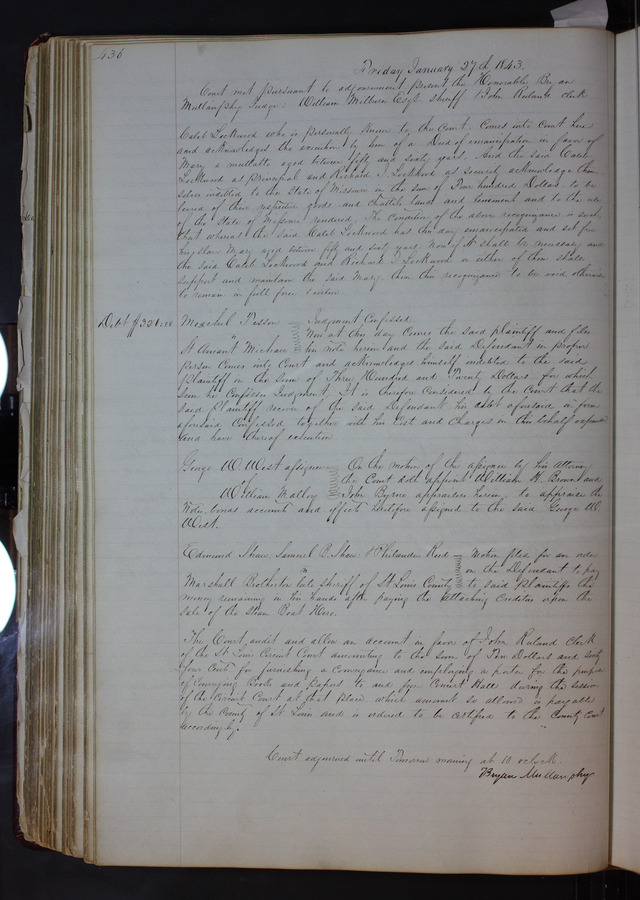 436
Friday January 27th 1843.
Court met pursuant to adjournment present the Honorable Bryan
Mullanphy Judge: William Milburn Esqr. Sheriff John Ruland Clerk
Caleb Lockwood who is personally known to the Court, Comes into Court here
and acknowledges the execution by him of a Deed of emancipation in favor of
Mary a mulatto aged between fifty and sixty years. And the said Caleb
Lockwood as principal and Richard J. Lockwood as security acknowledge them
selves indebted to the State of Missouri in the sum of Four hundred Dollars to be
levied of their respective goods and chattels lands and tenements and to the use
of the State of Missouri rendered. The Condition of the above recognizance is such,
that whereas the said Caleb Lockwood has this day emancipated and set free
his slave Mary aged between fifty and sixty years. Now if it shall be necessary and
the said Caleb Lockwood and Richard J. Lockwood or either of them shall
support and maintain the said Mary then this recognizance to be void otherwise
to remain in full force &
Debt $320.00
Judgment Confessed.
Now at this day Comes the said plaintiff and files
St Amant Michau his note herein and the said Defendant in proper
person Comes into Court and acknowledges himself indebted to the said
plaintiff in the sum of Three Hundred and Twenty Dollars for which
sum he Confesses Judgment. It is therefore Considered by the Court that the
said Plaintiff recover of the said Defendant his debt aforesaid in form
aforesaid Confessed together with his Cost and Charges in this behalf expended
and have thereof execution
George W. West assignee On the motion of the assignee by his Attorney
the Court doth appoint William H. Brown and
William Mallory John Byrne appraisers herein, to appraise the
Notes, bonds accounts and effects heretofore assigned to the said George W.
West.
Edmund Shaw, Samuel B. Shaw & Philander Reed Motion filed for an order
vs on the Defendant to pay
Marshall Brotherton late Sheriff of St Louis County to said plaintiffs the
money remaining in his hands after paying the attaching Creditors upon the
sale of the Steam Boat Hero.
The Court, audit and allow an account in favor of John Ruland Clerk
of the St Louis Circuit Court amounting to the sum of Ten Dollars and sixty
four Cents for furnishing a Conveyance and employing a porter for the purpose
of Conveying Books and Papers to and from Concert Hall during the session
of the Circuit Court at that place which amount so allowed is payable
by the County of St Louis and is ordered to be certified to the County Court
accordingly.
Court adjourned until Tomorrow morning at 10 oclock.
Bryan Mullanphy